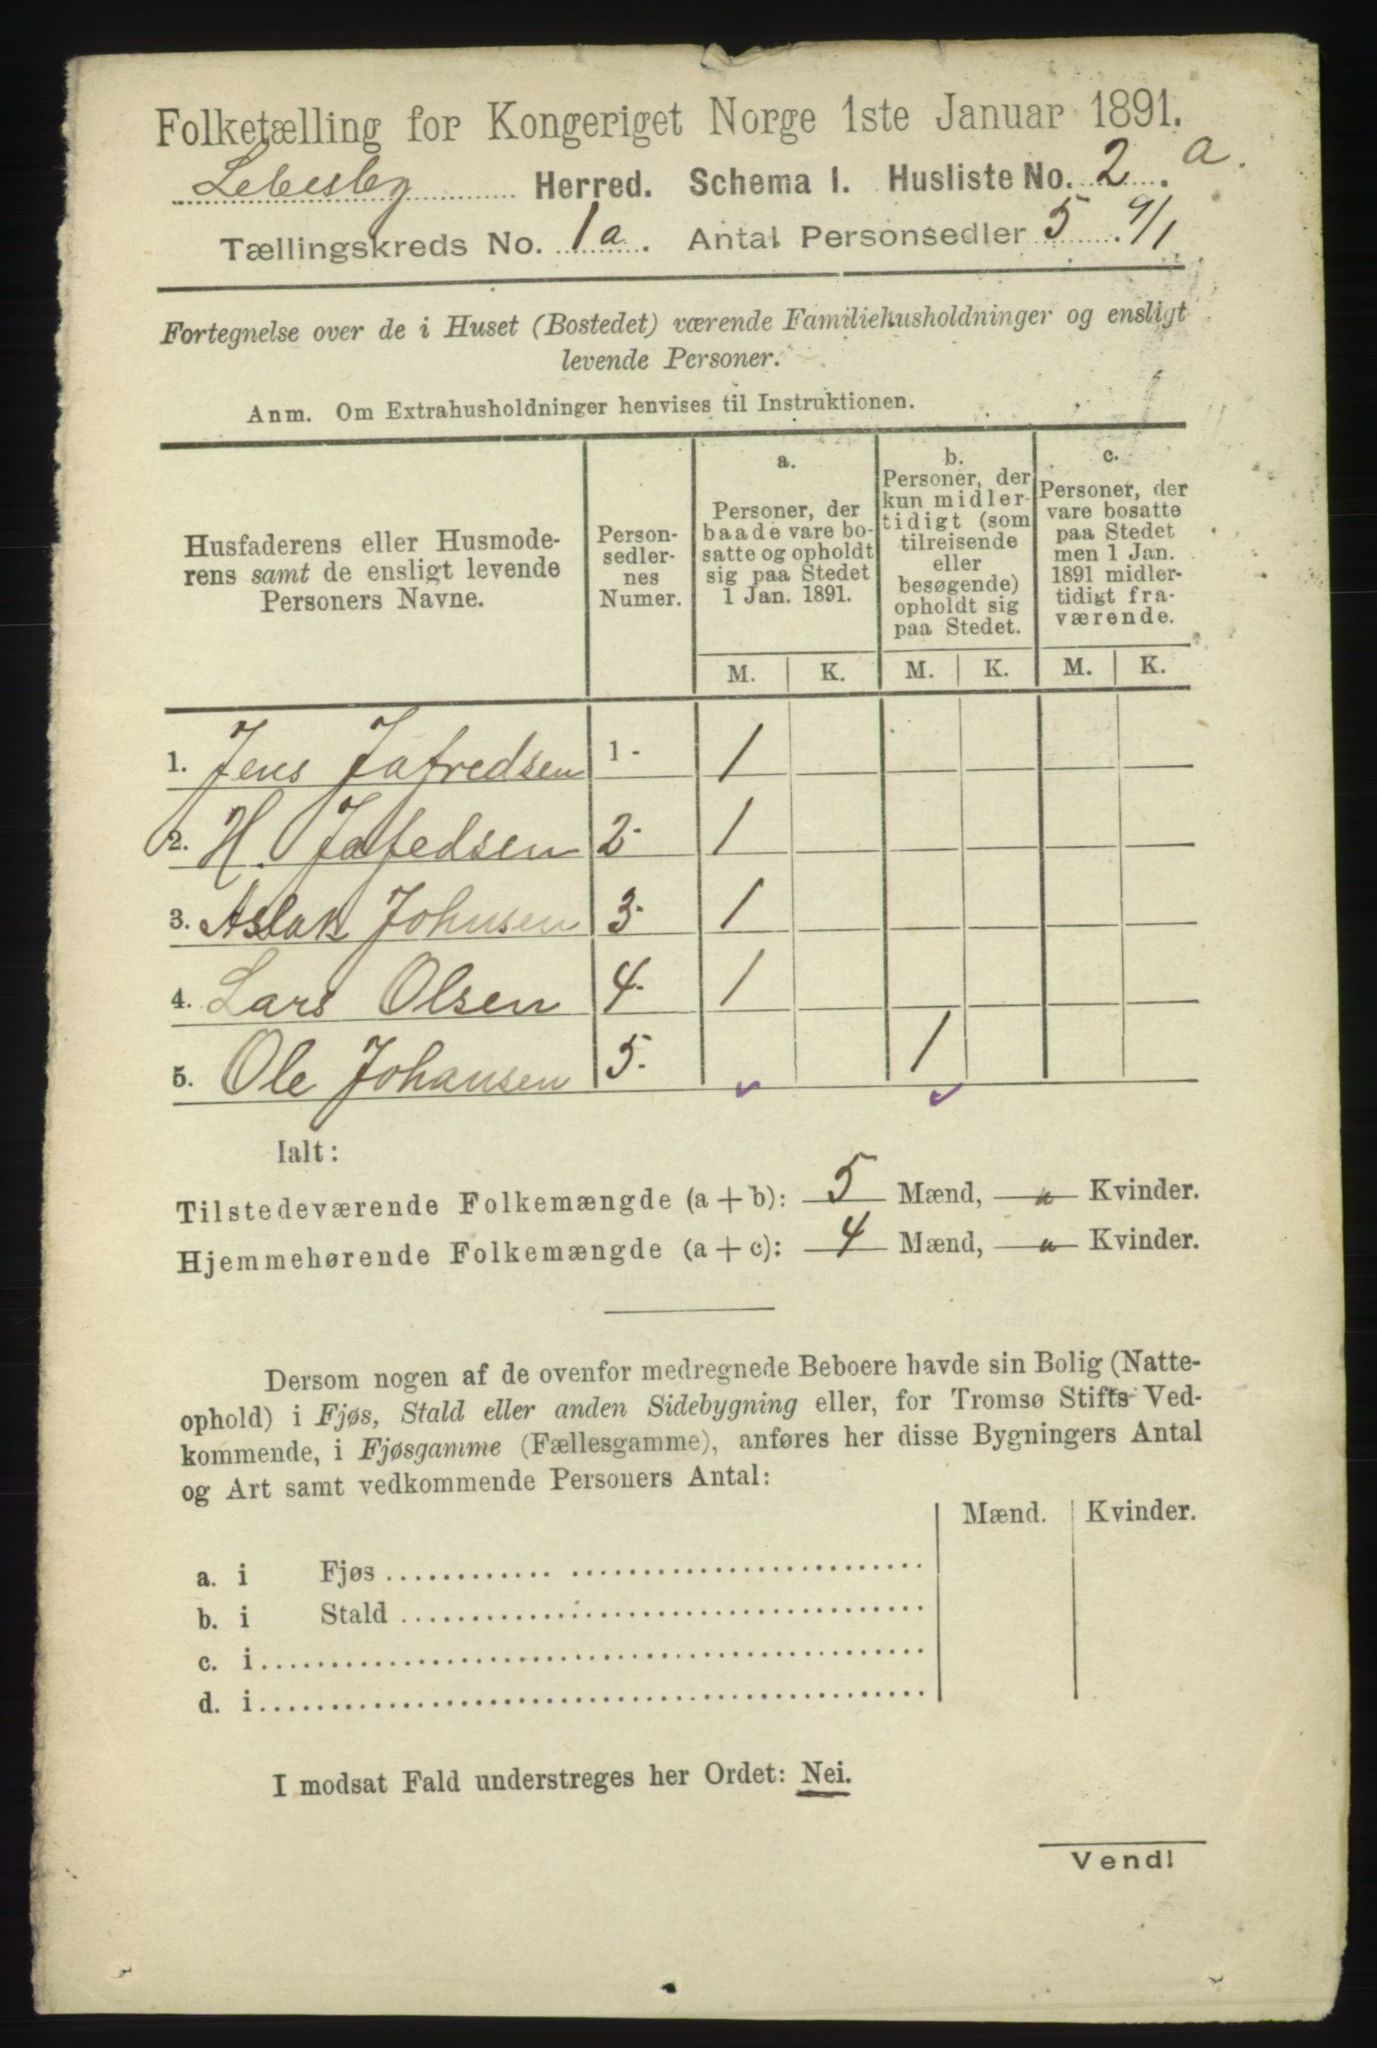 Folketælling for Kongeriget Norge 1ste Januar 1891.
Lebesby Herred. Schema I. Husliste No. 2 a.
Tællingskreds No. 1a. Antal Personsedler 5
Fortegnelse over de i Huset (Bostedet) værende Familiehusholdninger og ensligt
levende Personer.
Anm. Om Extrahusholdninger henvises til Instruktionen.
Husfaderens eller Husmode-
rens samt de ensligt levende
Personers Navne.
Person-
sedler-
nes
Numer.
a.
Personer, der
baade vare bo-
satte og opholdt
sig paa Stedet
1 Jan. 1891.
b.
Personer, der
kun midler-
tidigt (som
tilreisende
eller
besøgende)
opholdt sig
paa Stedet.
c.
Personer, der
vare bosatte
paa Stedet
men 1 Jan.
1891 midler-
tidigt fra-
værende.
M. K. M. K. M. K.
1. Jens Jafredsen 1- 1
2. H. Jafedsen 2- 1
3. Aslak Johnsen 3- 1
4. Lars Olsen 4- 1
5. Ole Johansen 5- 1
Ialt:
Tilstedeværende Folkemængde (a+b): 5 Mænd, — Kvinder.
Hjemmehørende Folkemængde (a+c): 4 Mænd, — Kvinder.
Dersom nogen af de ovenfor medregnede Beboere havde sin Bolig (Natte-
ophold) i Fjøs, Stald eller anden Sidebygning eller, for Tromsø Stifts Ved-
kommende, i Fjøsgamme (Fællesgamme), anføres her disse Bygningers Antal
og Art samt vedkommende Personers Antal:
Mænd. Kvinder.
a. i Fjøs
b. i Stald
c. i
d. i
I modsat Fald understreges her Ordet: Nei.
Vend!